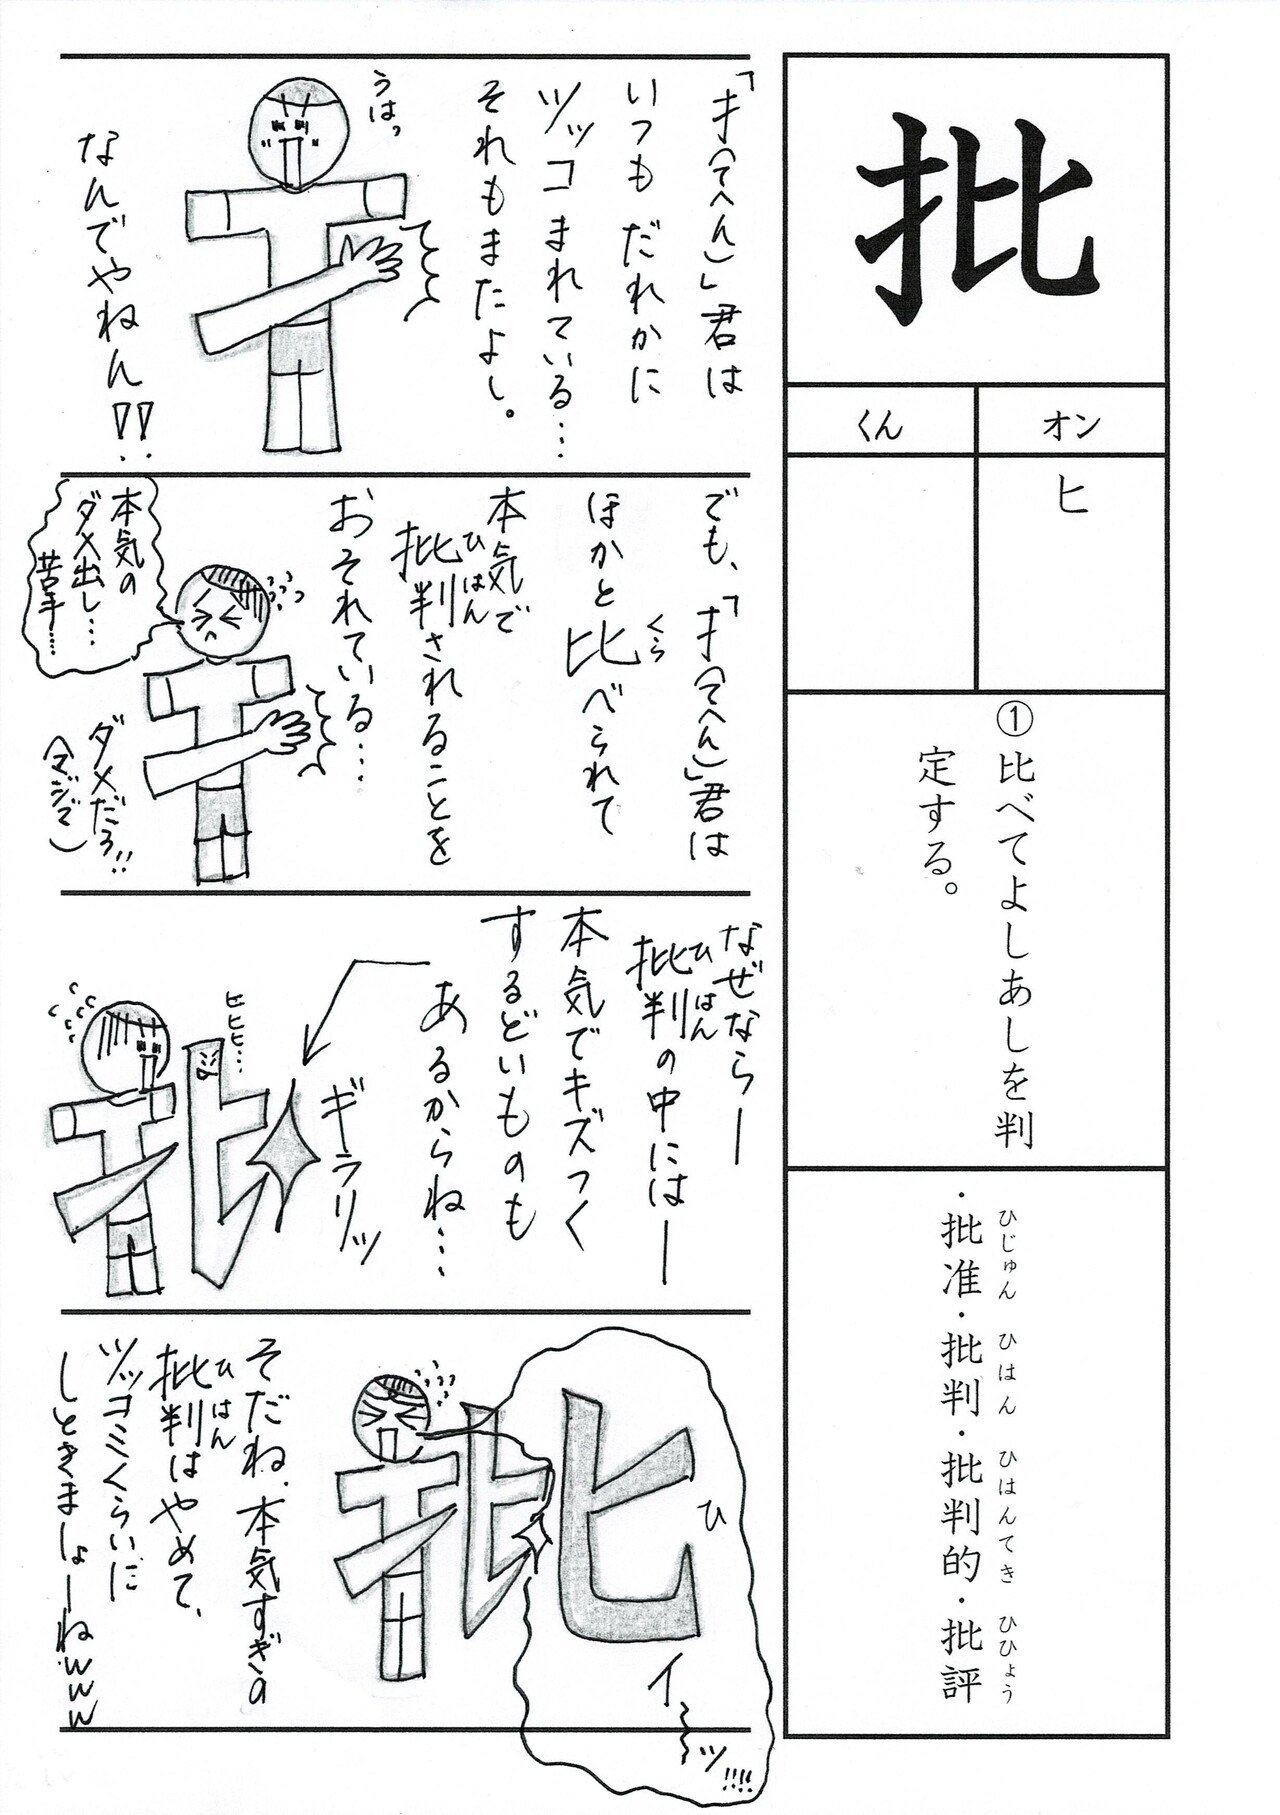 批
オン
ヒ
くん
①比べてよしあしを判
定する。
ひじゅん ひはん ひはんてき ひひょう
・批准・批判・批判的・批評
「扌(てへん)」君は
いつもだれかに
ツッコまれている…
それもまたよし。
うはっ
なんでやねん!!
でも、「扌(てへん)」君は
ほかと比べられて
くら
本気で
批判されることを
ひはん
おそれている…
本気の
ダメ出し…
苦手…
ダメだろ!!
(マジで)
なぜならー
批判の中にはー
ひはん
本気でキズつく
するどいものも
あるからね…
ギラリッ
ヒヒヒ…
ヒ
ひ
イ〜ッ!!!!
そだね、本気すぎの
批判はやめて、
ひはん
ツッコミくらいに
しときましょーねwww